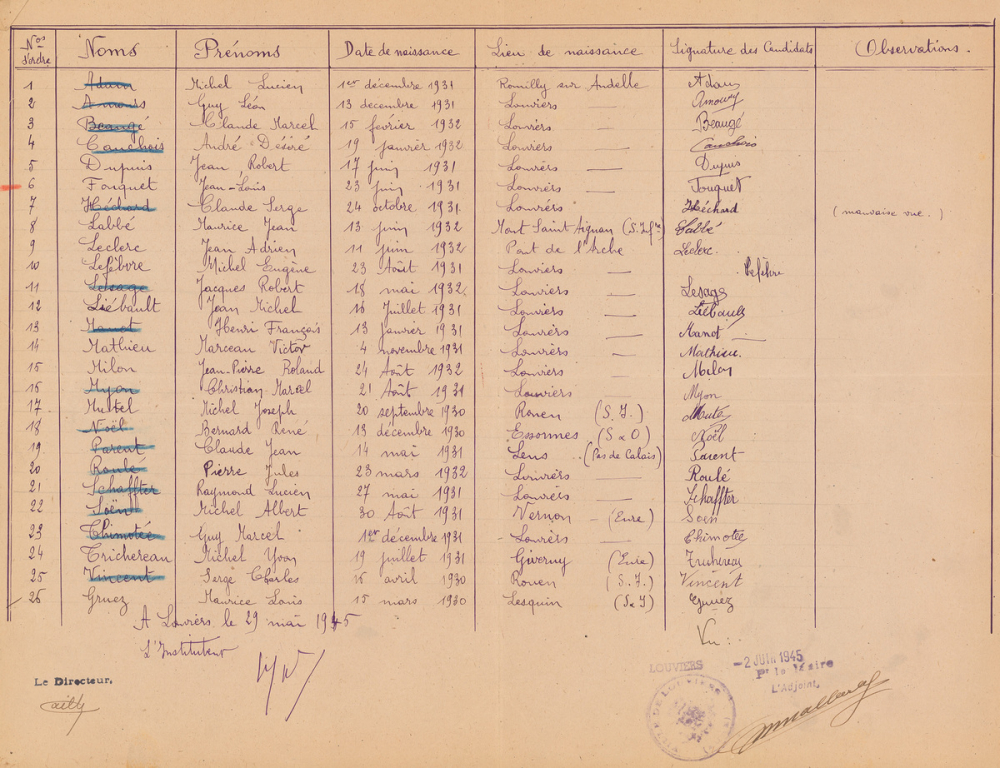 Nos d'ordre Noms Prénoms Date de naissance Lieu de naissance Signature des Candidats Observations.
1 Adam Michel Lucien 1er décembre 1931 Romilly sur Andelle Adam
2 Amours Guy Léon 13 decembre 1931 Louviers — Amours
3 Beaugé Claude Marcel 15 février 1932 Louviers — Beaugé
4 Cauchois André Désiré 19 janvier 1932 Louviers — Cauchois
5 Dupuis Jean Robert 17 juin 1931 Louviers — Dupuis
6 Fouquet Jean-Louis 23 juin 1931 Louviers — Fouquet
7 Héchard Claude Serge 24 octobre 1931 Louviers — Héchard (mauvaise vue.)
8 Labbé Maurice Jean 13 juin 1932 Mont Saint Aignan (S. Infre) Labbé
9 Leclerc Jean Adrien 11 juin 1932 Pont de l'Arche Leclerc.
10 Lefébvre Michel Eugène 23 Août 1931 Louviers — Lefèbvre
11 Lesage Jacques Robert 18 mai 1932 Louviers — Lesage
12 Liébault Jean Michel 16 Juillet 1931 Louviers — Liébault
13 Manot Henri François 13 janvier 1931 Louviers — Manot
14 Mathieu Marceau Victor 4 novembre 1931 Louviers — Mathieu.
15 Milon Jean-Pierre Roland 24 Août 1932 Louviers — Milon
16 Myon Christian Marcel 21 Août 1931 Louviers — Myon
17 Mutel Michel Joseph 20 septembre 1930 Rouen (S. I.) Mutel
18 Noël Bernard René 13 décembre 1930 Essonnes (S & O) Noël
19 Parent Claude Jean 14 mai 1931 Lens (Pas de Calais) Parent
20 Roulé Pierre Jules 23 mars 1932 Louviers — Roulé
21 Schaffter Raymond Lucien 27 mai 1931 Louviers — Schaffter
22 Soën Michel Albert 30 Août 1931 Vernon — (Eure) Soën
23 Thimotée Guy Marcel 1er décembre 1931 Louviers — Thimotée
24 Trichereau Michel Yvon 19 juillet 1931 Giverny (Eure) Trichereau
25 Vincent Serge Charles 16 avril 1930 Rouen (S. I.) Vincent
26 Gruez Maurice Louis 15 mars 1930 Lesquin Gruez
A Louviers le 29 mai 1945
L'Instituteur
Vu :
Le Directeur.
LOUVIERS -2 JUIN 1945
Pr le Maire
L'Adjoint,